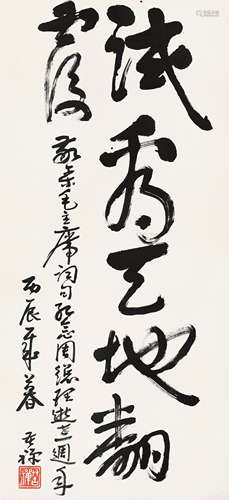 试看天地翻
覆
敬录毛主席词句纪念周总理逝世一周年
丙辰年暮